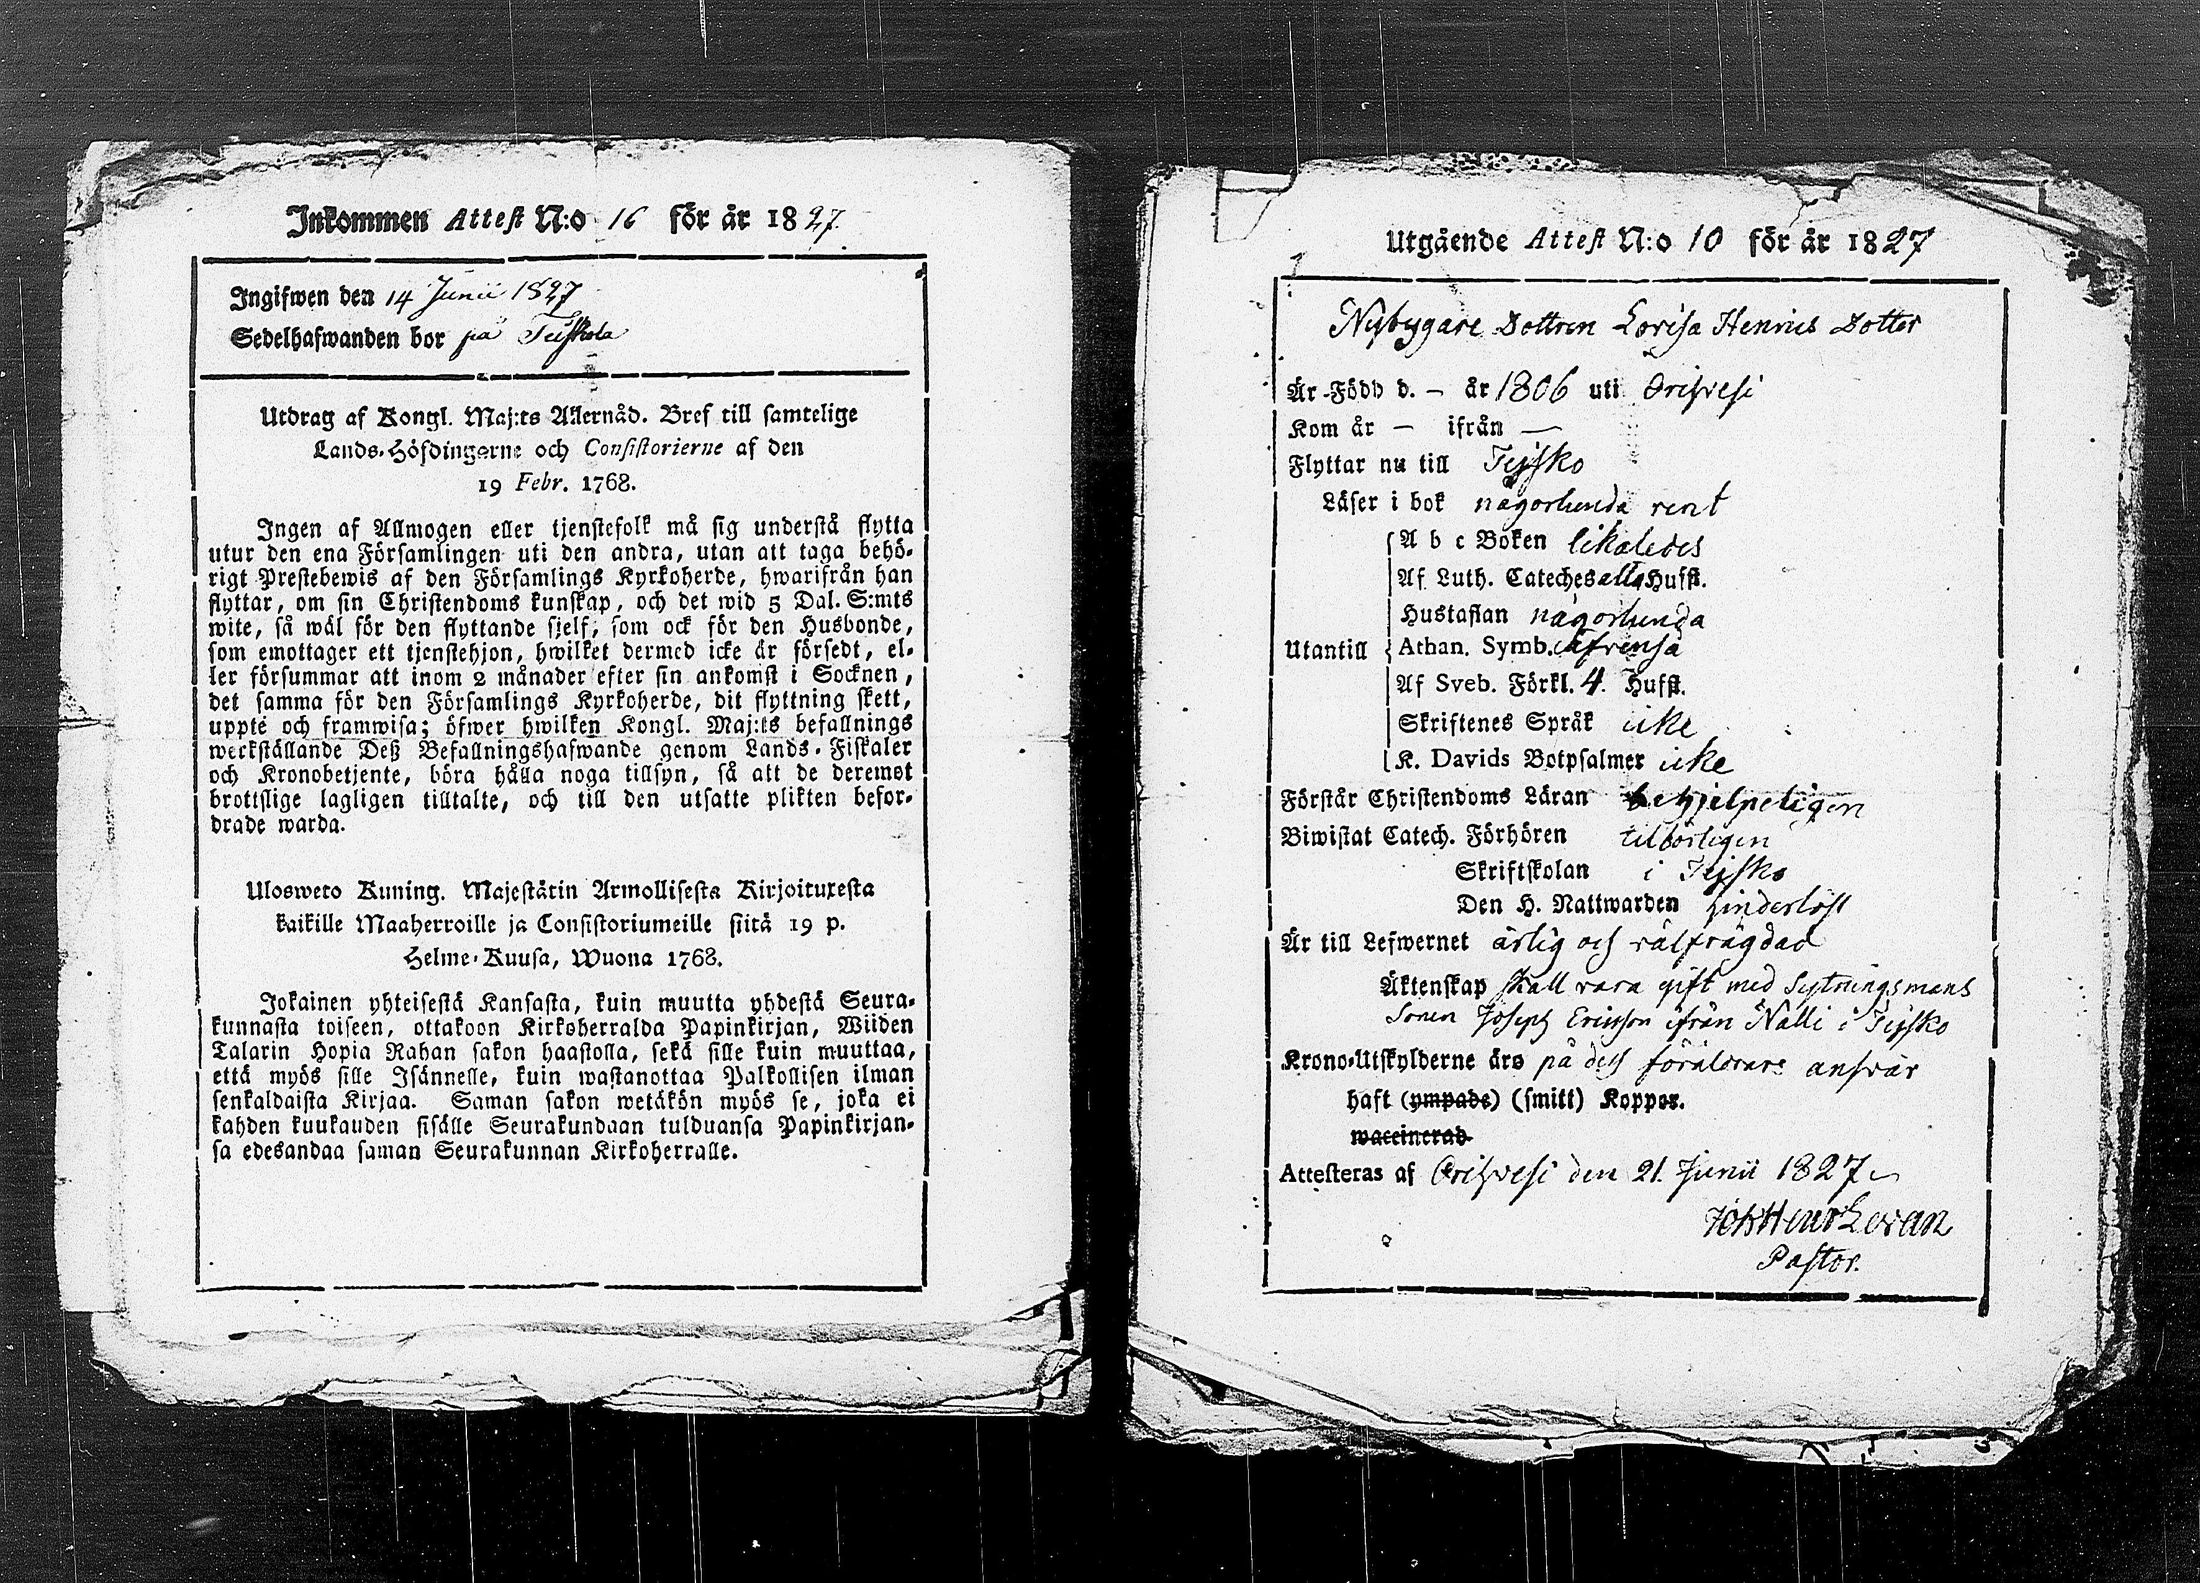 Inkommen Attest N:o 16 för år 1827.
Ingifwen den 14 Junii 1827
Sedelhafwanden bor på Teiskola
Utdrag af Kongl. Maj:ts Allernåd. Bref till samtelige
Lands-Höfdingarne och Consistorierne af den
19 Febr. 1768.
Ingen af Allmogen eller tjenstefolk må sig understå flytta
utur den ena Församlingen uti den andra, utan att taga behö-
rigt Prestebewis af den Församlings Kyrkoherde, hwarifrån han
flyttar, om sin Christendoms kunskap, och det wid 5 Dal. S:mts
wite, så wäl för den flyttande sjelf, som ock för den Husbonde,
som emottager ett tjenstehjon, hwilket dermed icke är försedt, el-
ler försummar att inom 2 månader efter sin ankomst i Socknen,
det samma för den Församlings Kyrkoherde, dit flyttning skett,
uppte och framwisa; öfwer hwilken Kongl. Maj:ts befallnings
werkställande Deß Befallningshafwande genom Lands-Fiskaler
och Kronobetjente, böra hålla noga tillsyn, så att de deremot
brottslige lagligen tilltalte, och till den utsatte plikten befor-
drade warda.
Ulosweto Kuning. Majestätin Armollisesta Kirjoituxesta
kaikille Maaherroille ja Consistoriumeille siitä 19 p.
Helme-Kuusa, Wuona 1768.
Jokainen yhteisestä Kansasta, kuin muutta yhdestä Seura-
kunnasta toiseen, ottakoon Kirkoherralda Papinkirjan, Wiiden
Talarin Hopia Rahan sakon haastolla, sekä sille kuin muuttaa,
että myös sille Isännelle, kuin wastanottaa Palkollisen ilman
senkaldaista Kirjaa. Saman sakon wetäkön myös se, joka ei
kahden kuukauden sisälle Seurakundaan tulduansa Papinkirjan-
sa edesandaa saman Seurakunnan Kirkoherralle.
Utgående Attest N:o 10 för år 1827
Nybygare Dottren Lovisa Henrics Dotter
Är Född d. – år 1806 uti Orihvesi
Kom år – ifrån —
Flyttar nu till Teisko
Läser i bok någorlunda rent
A b c Boken likaledes
Af Luth. Cateches alla Hufst.
Hustaflan någorlunda
Utantill Athan. Symb. äfvenså
Af Sveb. Förkl. 4. Hufst.
Skriftenes Språk icke
K. Davids Botpsalmer icke
Förstår Christendoms Läran behjelpeligen
Biwistat Catech. Förhören tilbörligen
Skriftskolan i Teisko
Den H. Nattwarden hinderlöst
Är till Lefwernet ärlig och välfrägdad
Äktenskap skall vara gift med Sytningsmans
Sonen Joseph Ericsson ifrån Nalli i Teisko
Krono-Utskylderne äro på dess föräldrars answar
haft (ympade) (smitt) Koppor.
waccinerad
Attesteras af Orihvesi den 21. Junii 1827
Joh Henr Levan
Pastor.